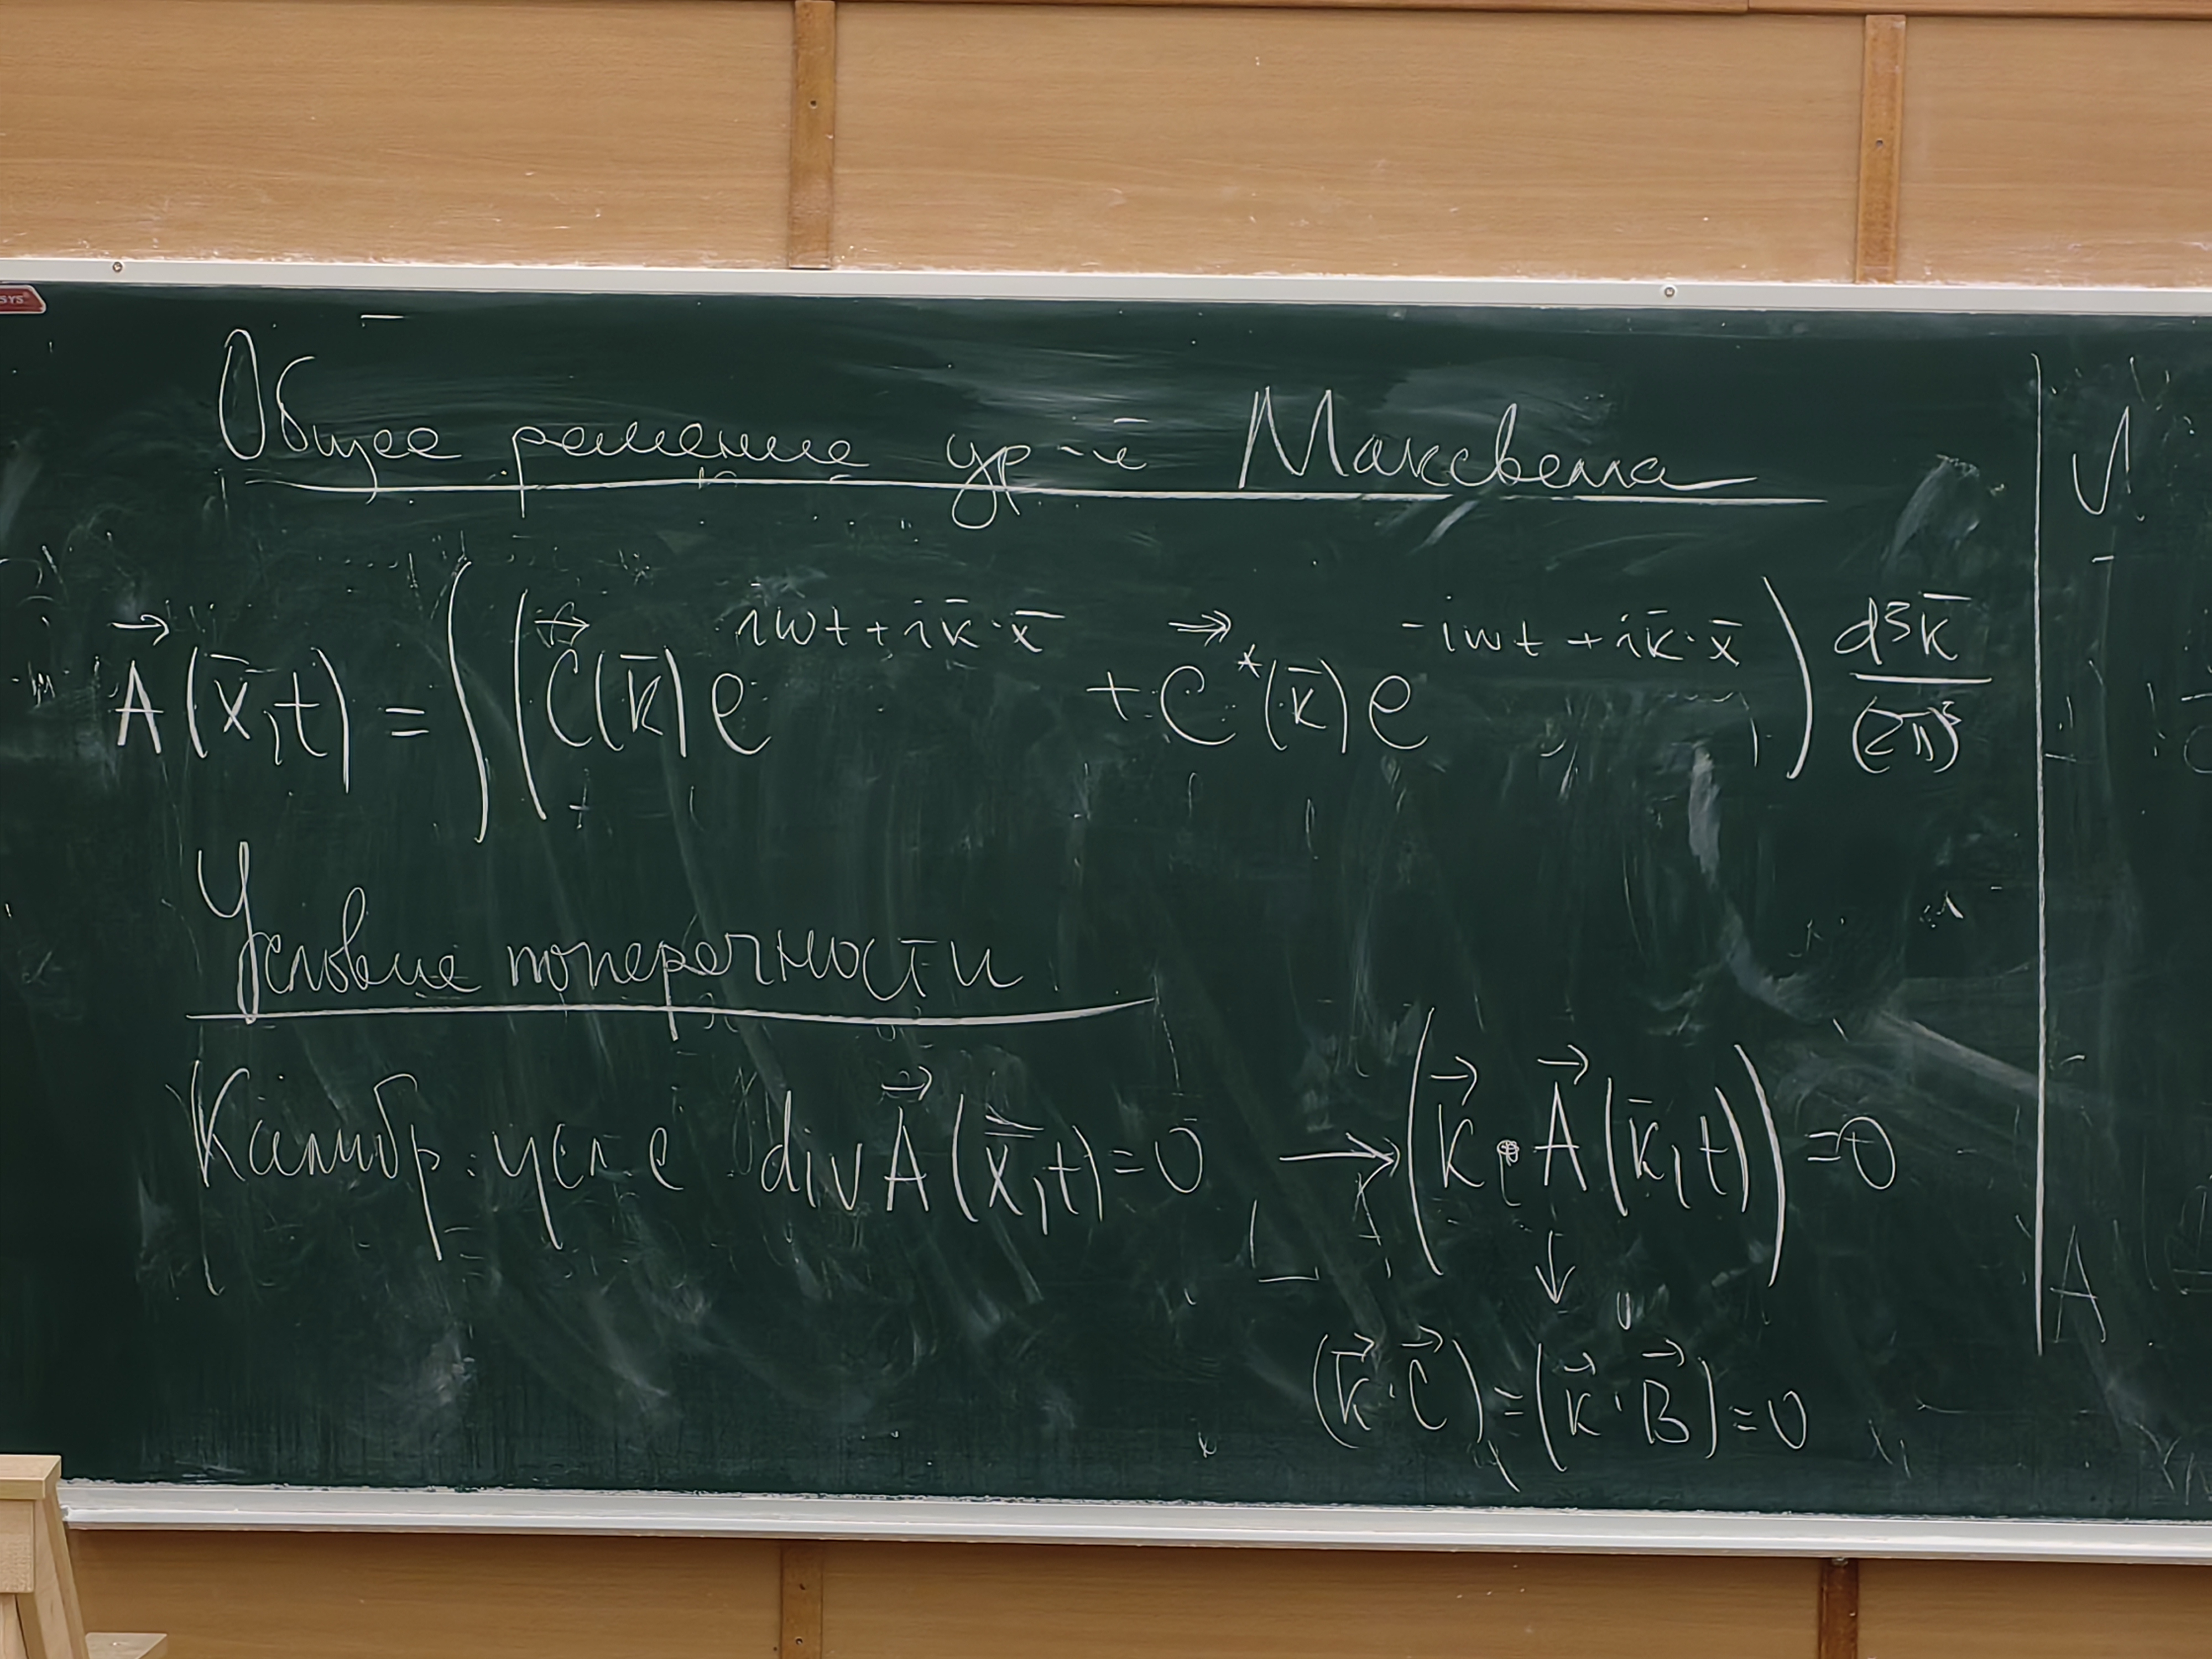 Общее решение ур-й Максвелла
$\vec{A}(\bar{x},t) = \int \left( \vec{C}(\bar{k}) e^{i\omega t + i\bar{k}\cdot\bar{x}} + \vec{C}^*(\bar{k}) e^{-i\omega t + i\bar{k}\cdot\bar{x}} \right) \frac{d^3\bar{k}}{(2\pi)^3}$
Условие поперечности
Калибр. усл-е $div \vec{A}(\bar{x},t) = 0 \longrightarrow \left( \vec{k} \cdot \vec{A}(\bar{k},t) \right) = 0$
↓
$(\vec{k}\cdot\vec{C}) = (\vec{k}\cdot\vec{B}) = 0$